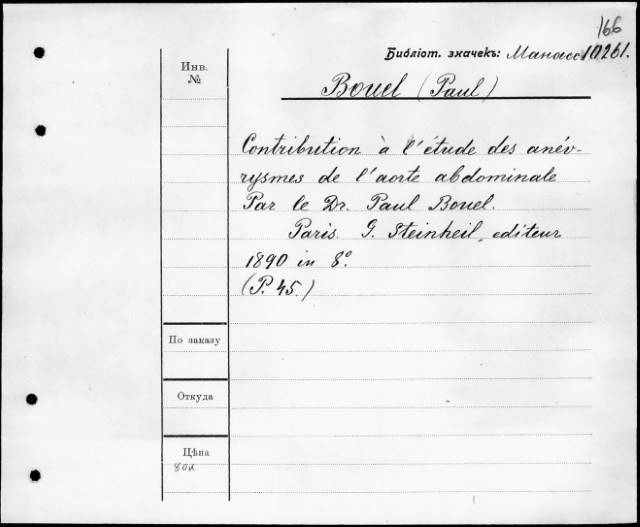 166
Библіот. значекъ: Манасс 10261.
Инв.
№
Bouel (Paul)
Contribution à l'étude des anév-
rysmes de l'aorte abdominale
Par le Dr. Paul Bouel.
Paris. G. Steinheil, editeur
1890 in 8°.
(P. 45.)
По заказу
Откуда
Цѣна